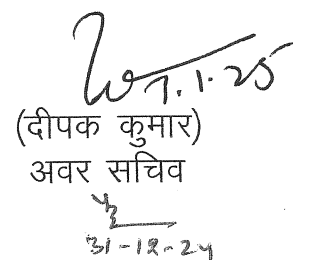 7.1.25
(दीपक कुमार)
अवर सचिव
31-12-24